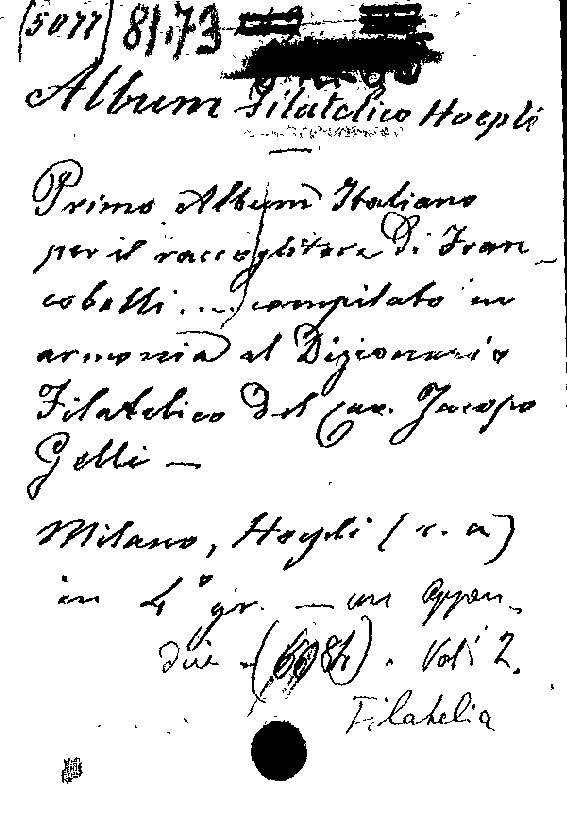 (5077) 81.73
Album Filatelico Hoepli
Primo Album Italiano
per il raccoglitore di Fran-
cobolli .... compilato in
armonia al Dizionario
Filatelico del Cav. Jacopo
Gelli —
Milano, Hoepli (s. a)
in 4° gr. — un appen-
dice - . Vol. 2.
Filatelia